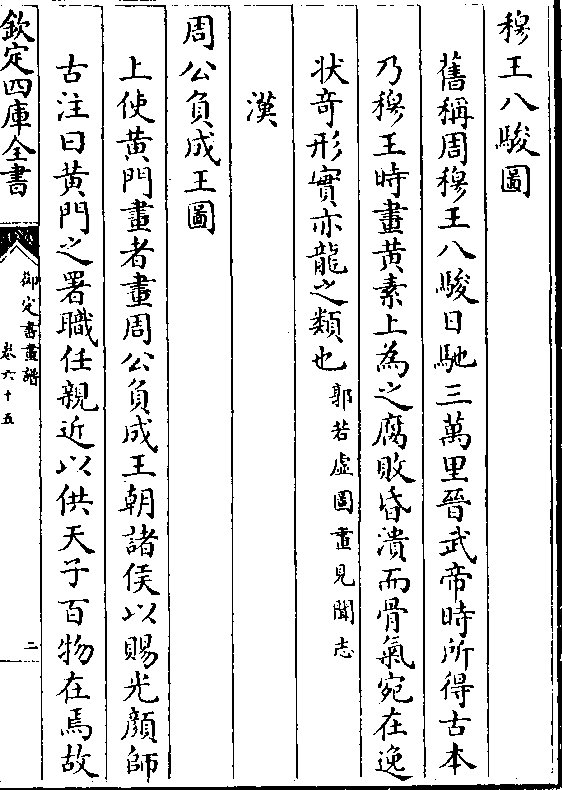 穆王八駿圖
舊稱周穆王八駿日馳三萬里晉武帝時所得古本
乃穆王時畫黄素上為之腐敗昏潰而骨氣宛在逸
状奇形實亦龍之類也郭若虛圖畫見聞志
漢
周公負成王圖
上使黄門畫者畫周公負成王朝諸侯以賜光顔師
古注曰黄門之署職任親近以供天子百物在焉故
欽定四庫全書
御定書畫譜
卷六十五
二